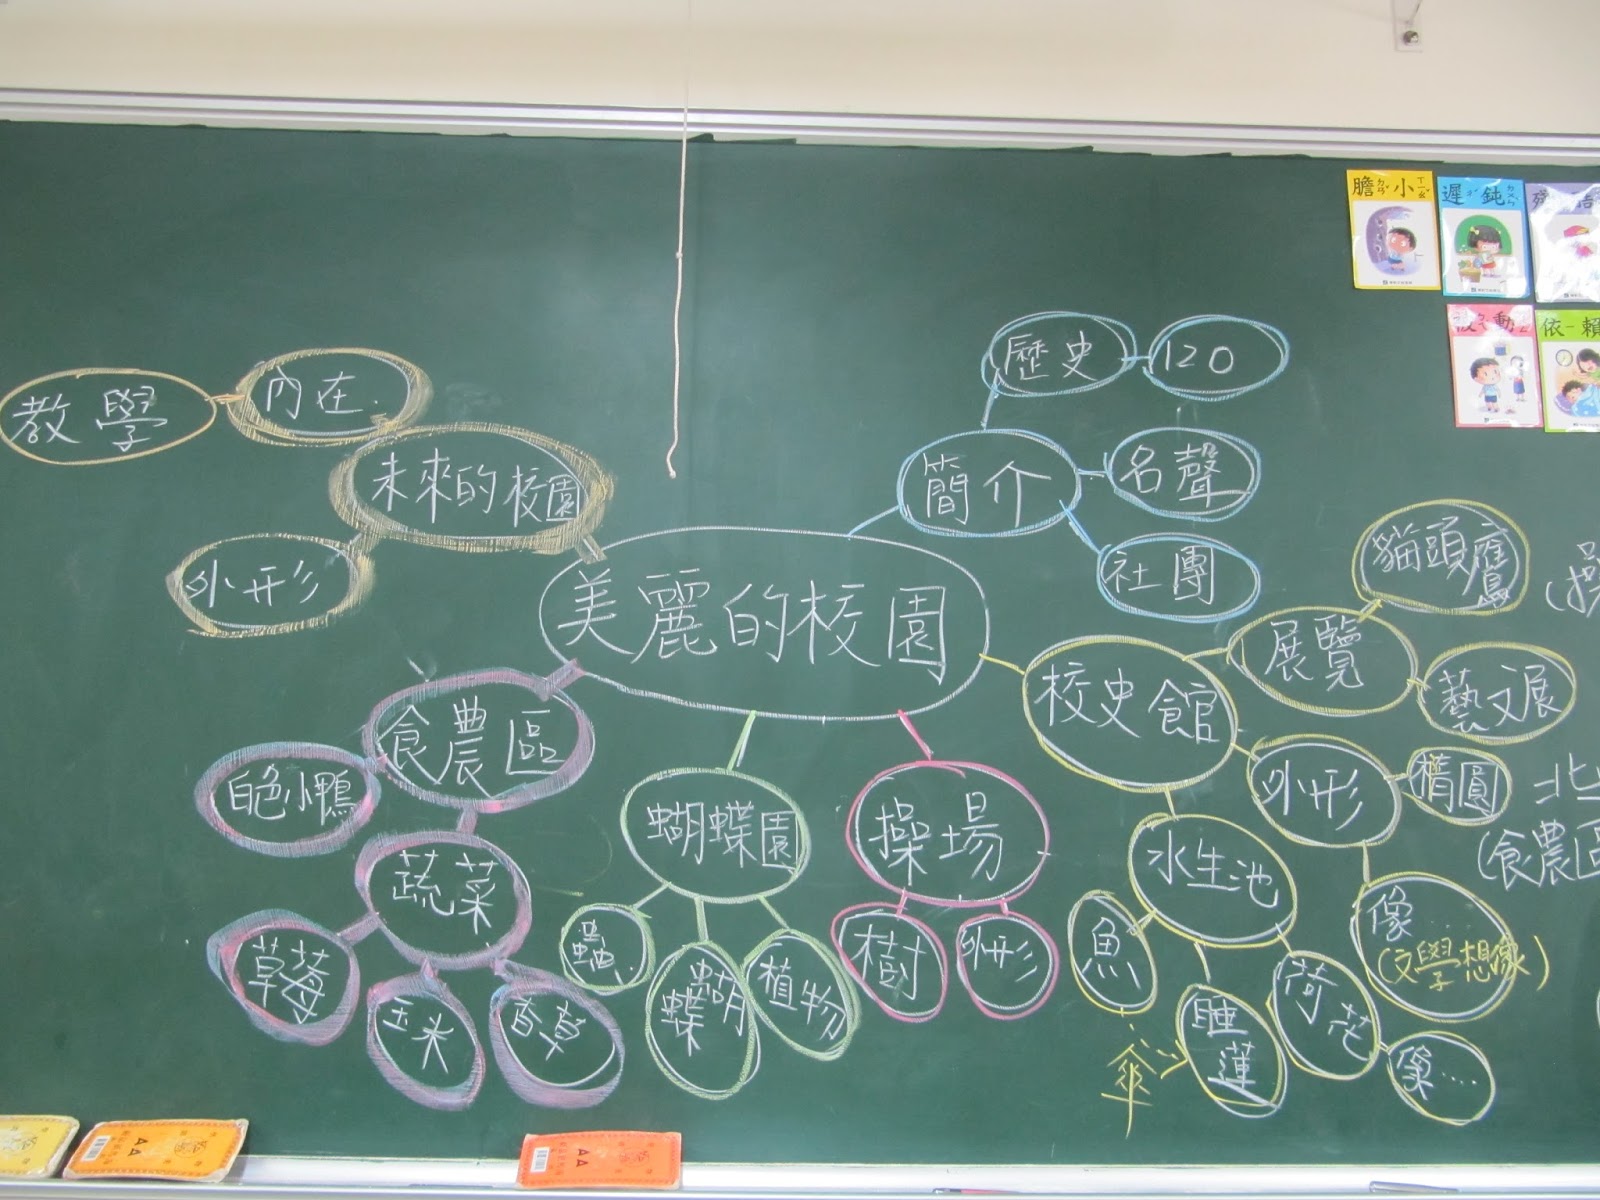 膽小
遲鈍
依賴
歷史
120
教學
內在
未來的校園
簡介
名聲
外形
社團
美麗的校園
貓頭鷹
展覽
藝文展
校史館
食農區
白色小鴨
外形
橢圓
北
(食農區
蝴蝶園
操場
水生池
蔬菜
像...
(文學想像)
草莓
玉米
香草
蝴蝶
植物
樹
外形
魚
睡蓮
荷花
像....
傘